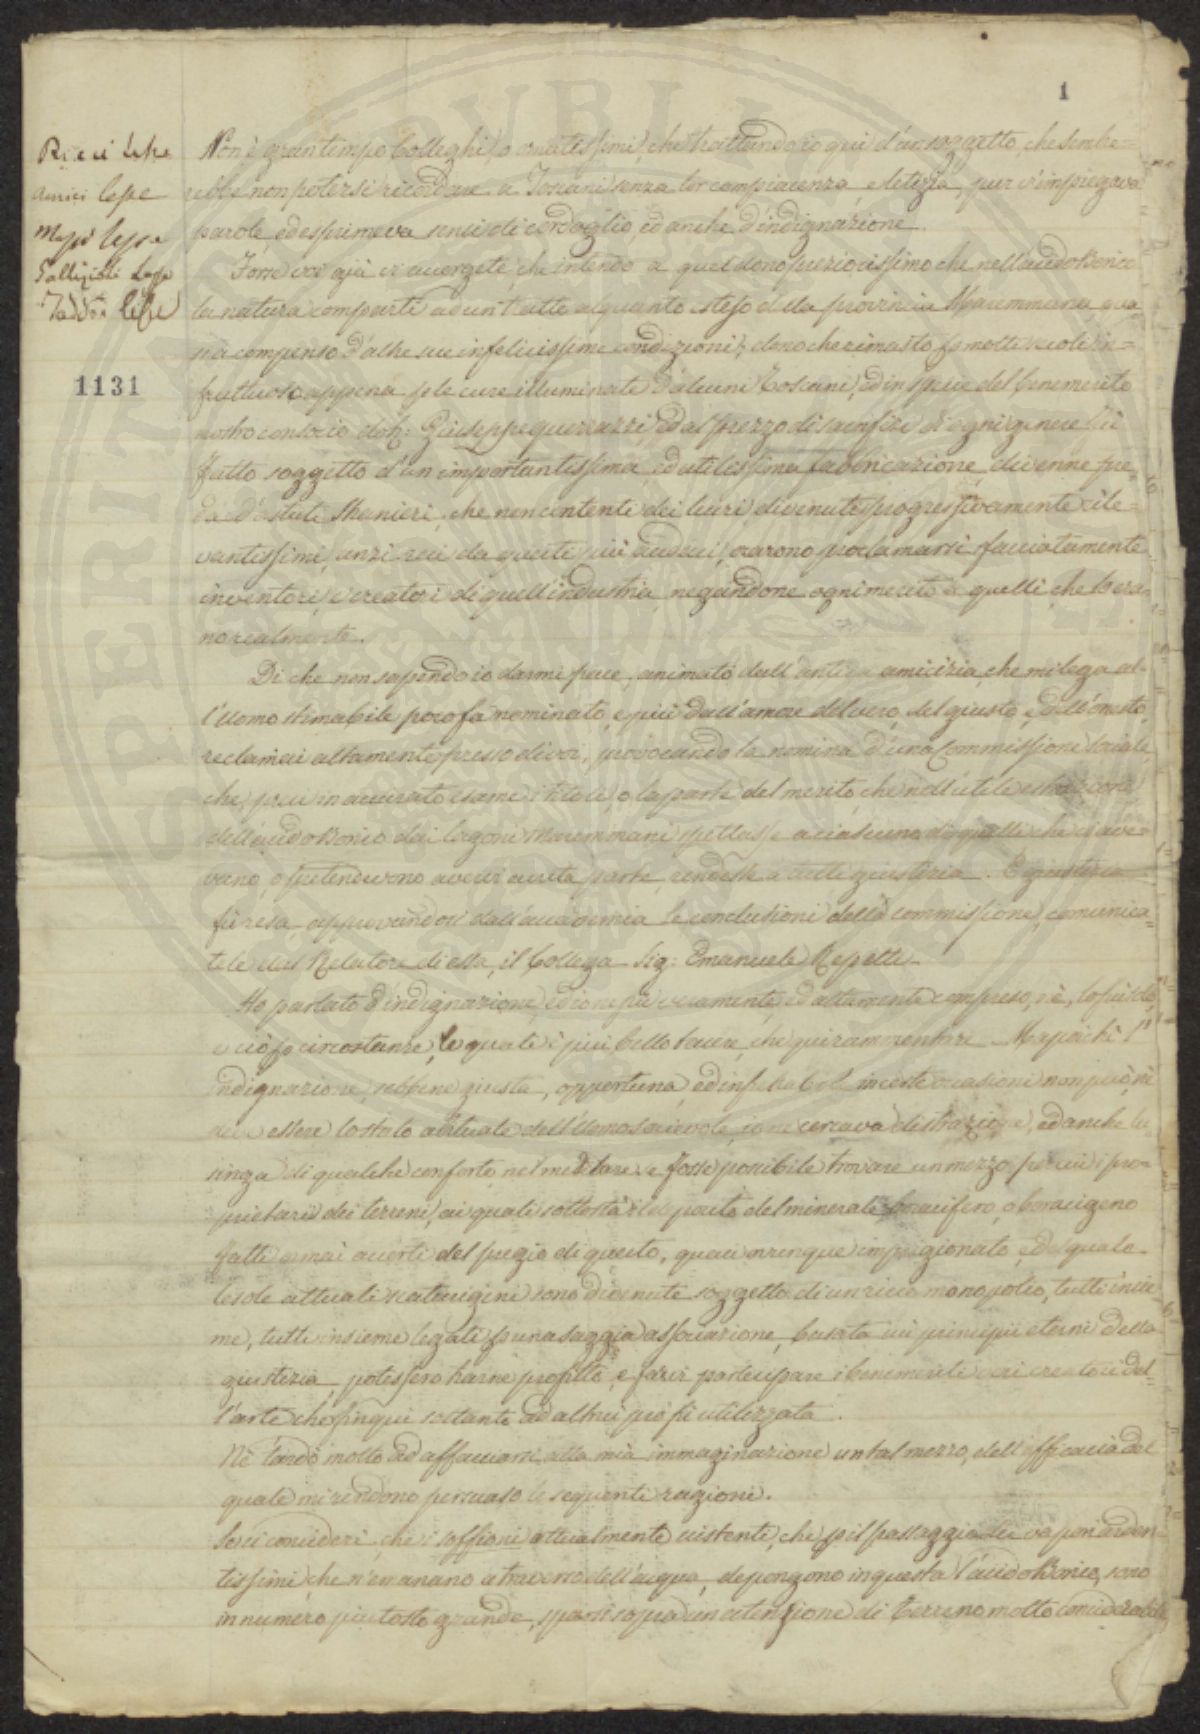 1
Ricci lesse
Amici lesse
Magi lesse
Gallizioli lesse
Taddei lesse
1131
Non è gran tempo Colleghi ornatissimi, che trattando io qui d'un soggetto, che sembre=
rebbe non potersi ricordare a Toscani senza lor compiacenza, e letizia, pur v'impiegava
parole ed esprimeva sensi di cordoglio, ed anche d'indignazione.
Forse voi già vi avvergete, che intendo a quel dono preziosissimo che nell'acido Borico
la natura compartì ad un tratto alquanto esteso della provincia Maremmana qua
si a compenso d'altre sue infelicissime condizioni; dono che rimasto p molti secoli in=
fruttuoso appena p le cure illuminate d'alcuni Toscani, ed in specie del benemerito
nostro consocio dott: Giuseppe Guerrazzi, ed al prezzo di sacrifizi d'ogni genere fù
fatto soggetto d'un importantissima, ed utilissima fabbricazione, divenne pre
da d'astuti stranieri, che non contenti dei lucri divenuti progressivamente rile=
vantissimi, anzi resi da questi più audaci, osarono proclamarsi sfacciatamente
inventori, e creatori di quell'industria, negandone ogni merito a quelli, che lo era
no realmente.
Di che non sapendo io darmi pace, animato dall'antica amicizia, che mi lega al=
l'Uomo stimabile poco fà nominato, e più dall'amore del vero, del giusto, e dell'onesto,
reclamai altamente presso di voi, provocando la nomina d'una Commissione sociale,
che, preso in accurato esame i titoli, o la parte del merito, che nell'utile estrazione
dell'acido Borico dai lagoni Maremmani spettasse a ciascuno di quelli che ci ave=
vano, o pretendevono averci avuta parte, rendesse a tutti giustizia. E giustizia
fù resa, approvandosi dall'accademia le conclusioni della commissione, comunica=
tele dal Relatore di essa, il Collega Sig: Emanuele Repetti.
Ho parlato d'indignazione, ed io ne più vivamente, ed altamente compreso,
e ciò p circostanze, le quali è più bello tacere, che qui rammentare. Ma poichè l'
indignazione, sebbene giusta, opportuna, ed in certe occasioni non può, nè
deve essere lo stato abituale dell'Uomo socievole, io ne cercava distrazione, ed anche lu
singa di qualche conforto nel meditare, se fosse possibile trovare un mezzo, per cui i pro=
prietarii dei terreni, ai quali sottostà il deposito del minerale boracifero, o boracigeno
fatti omai accorti del pregio di questo, quasi ovunque imprigionato, e del quale
le sole attuali scaturigini sono divenute soggetto di un ricco monopolio, tutti insie
me, tutti insieme legati p una saggia associazione, basata sui principii eterni della
giustizia, potessero trarne profitto, e farvi partecipare i benemeriti veri creatori del=
l'arte che fin qui soltanto ad altrui prò fù utilizzata.
Nè tardò molto ad affacciarsi alla mia immaginazione un tal mezzo, dell'efficacia del
quale mi rendono persuaso le seguenti ragioni.
Se si consideri, che i soffioni attualmente esistenti, che p il passaggio dei vapori arden=
tissimi, che n'emanano a traverso dell'acqua, depongono in questa l'acido Borico, sono
in numero piuttosto grande, sparsi sopra un'estensione di terreno molto considerabile,